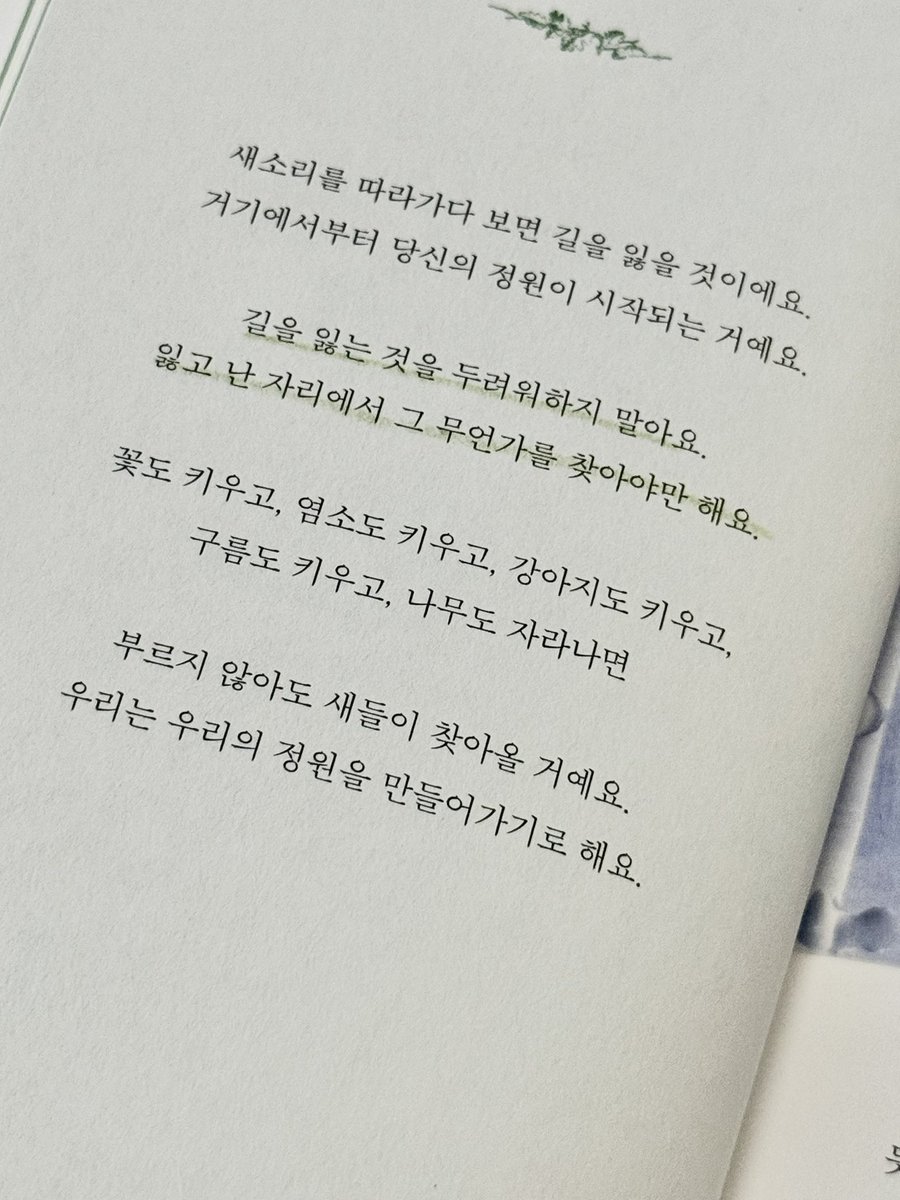 새소리를 따라가다 보면 길을 잃을 것이에요.
거기에서부터 당신의 정원이 시작되는 거예요.
길을 잃는 것을 두려워하지 말아요.
잃고 난 자리에서 그 무언가를 찾아야만 해요.
꽃도 키우고, 염소도 키우고, 강아지도 키우고,
구름도 키우고, 나무도 자라나면
부르지 않아도 새들이 찾아올 거예요.
우리는 우리의 정원을 만들어가기로 해요.